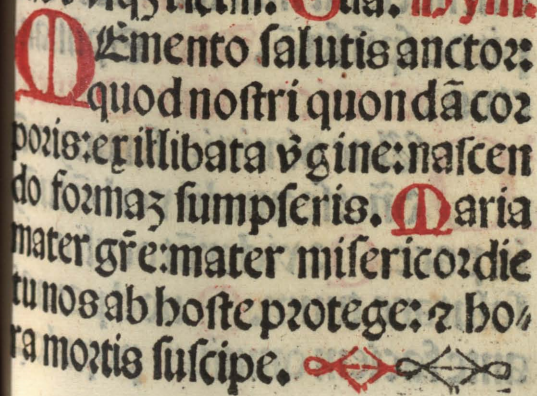 Memento salutis anctor:
quod nostri quondã cor
poris: ex illibata v̾gine: nascen
do formaꝫ sumpseris. Maria
mater gr̃e: mater misericordie
tu nos ab hoste protege: ⁊ ho⸗
ra mortis suscipe.